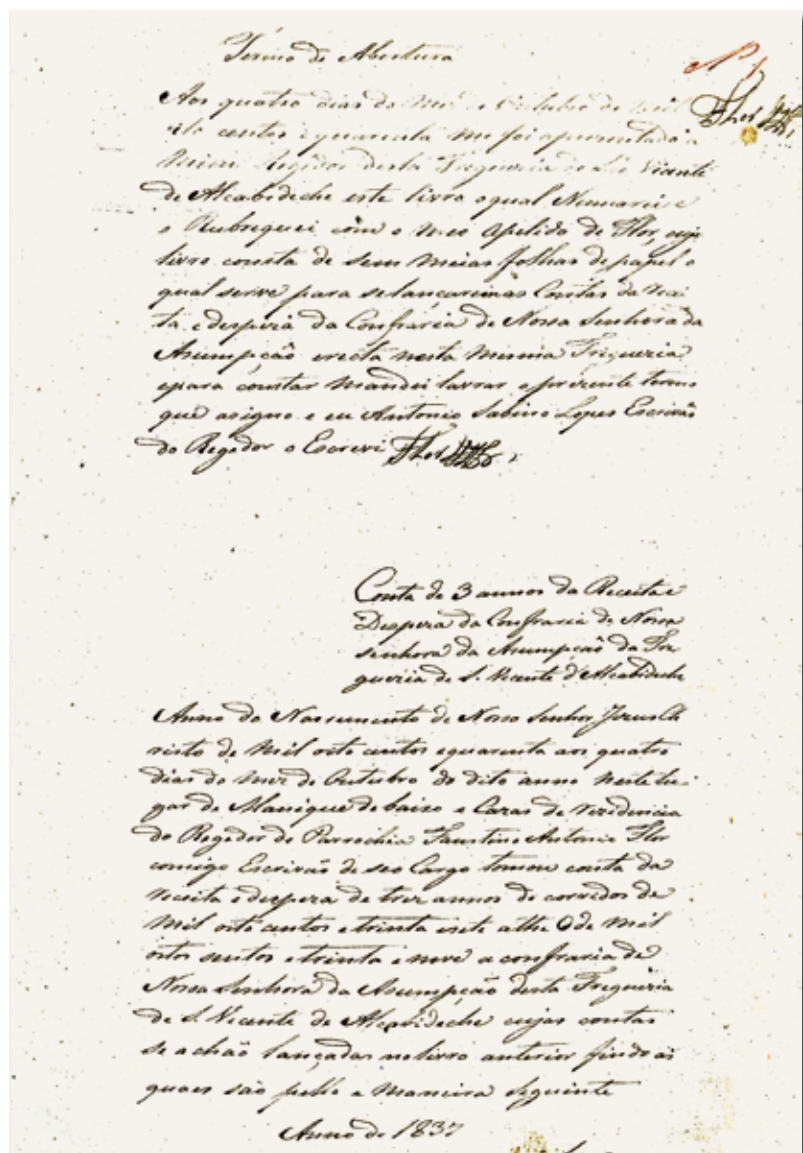 Termo de Abertura
Nº 1
Flor
Aos quatro dias do Mes de Outubro de mil
oito centos e quarenta me foi aprezentado a
Mim Regedor desta Freguezia de São Vicente
de Alcabideche este livro o qual Numarei e
o Rubreguei com o meo Apelido de Flor, cujo
livro consta de sem meias folhas de papel o
qual serve para se lancarem as Contas da recei
ta e despeza da Confraria de Nossa Senhora da
Asumpção erecta nesta mesma Freguezia
e para constar Mandei lavrar o prezente termo
que asigno e eu Antonio Sabino Lopes Escrivão
do Regedor o Escrevi Flor
Conta de 3 annos da Receita e
Despeza da Confraria de Nossa
senhora da Asumpção da Fre
guezia de S. Vicente d'Alcabideche
Anno do Nascimento de Nosso Senhor Jezus Ch
risto de Mil oito centos e quarenta aos quatro
dias do mez de Outubro do dito anno neste lu-
gar de Manique de baixo e Cazas de rezidencia
do Regedor de Parrochia Faustino Antonio Flor
comigo Escrivão de seo Cargo tomou conta da
receita e despeza de trez annos de corridos de
Mil oito centos e trinta e sete athe O de mil
oitos sentos e trinta e nove a confraria de
Nossa Senhora da Asumpção desta Freguezia
de S. Vicente de Alcabideche cujas contas
se achão lançadas no livro anterior findo as
quaes são pella a maneira seguinte
Anno de 1837